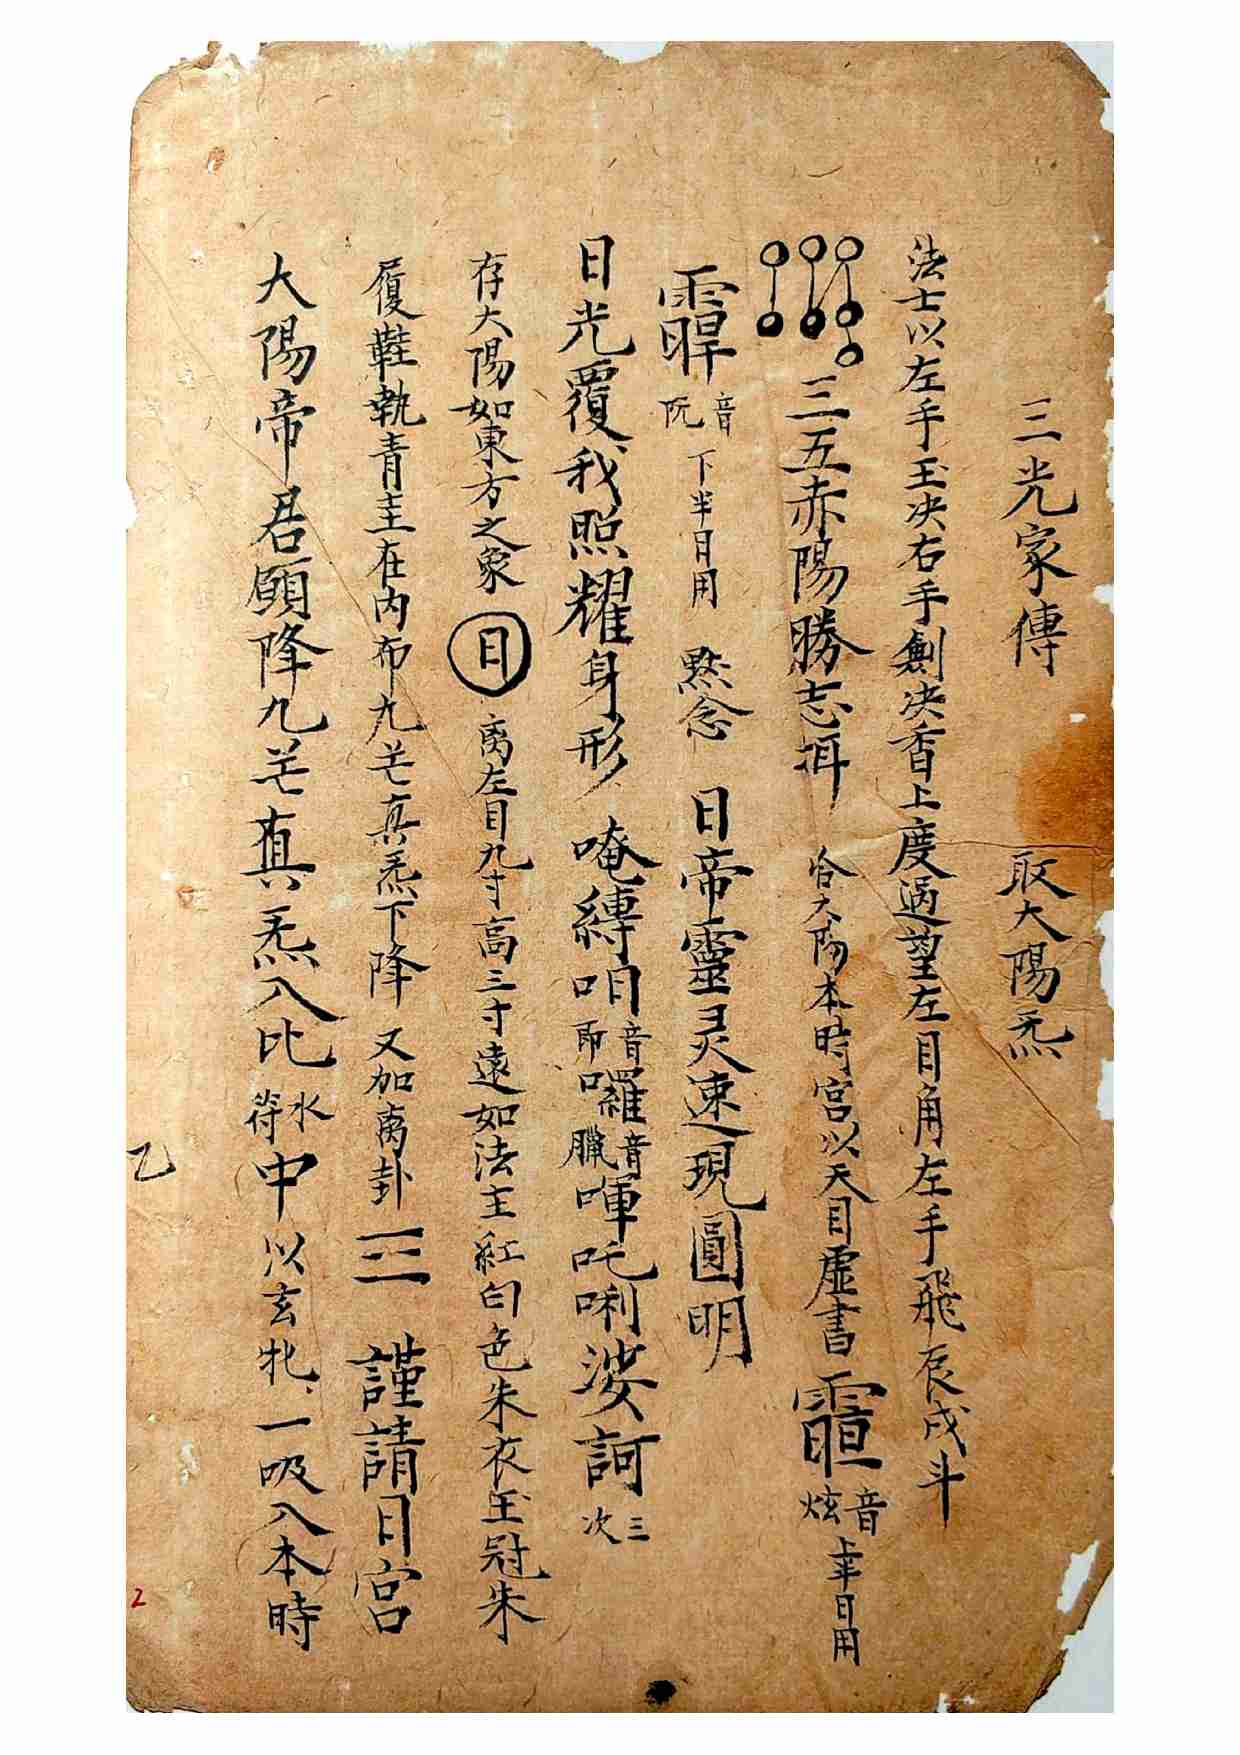 三光家傳　取大陽炁
法士以左手玉决右手劍决香上度過望左目角左手飛辰戌斗
三五赤陽勝志 合太陽本時宮以天目虛書 音炫 上半日用
音阮 下半日用 黙念 日帝靈灵速現圓明
日光覆我照耀身形 唵縳㖀音郎囉音臘㖶吒唎娑訶 三次
存大陽如東方之象 日 离左目九寸高三寸遠如法主紅白色朱衣玉冠朱
履鞋執青圭在內布九芒真炁下降 又加离卦☲ 謹請日宮
大陽帝君願降九芒真炁入比水等中以玄牝一吸入本時
乙
2